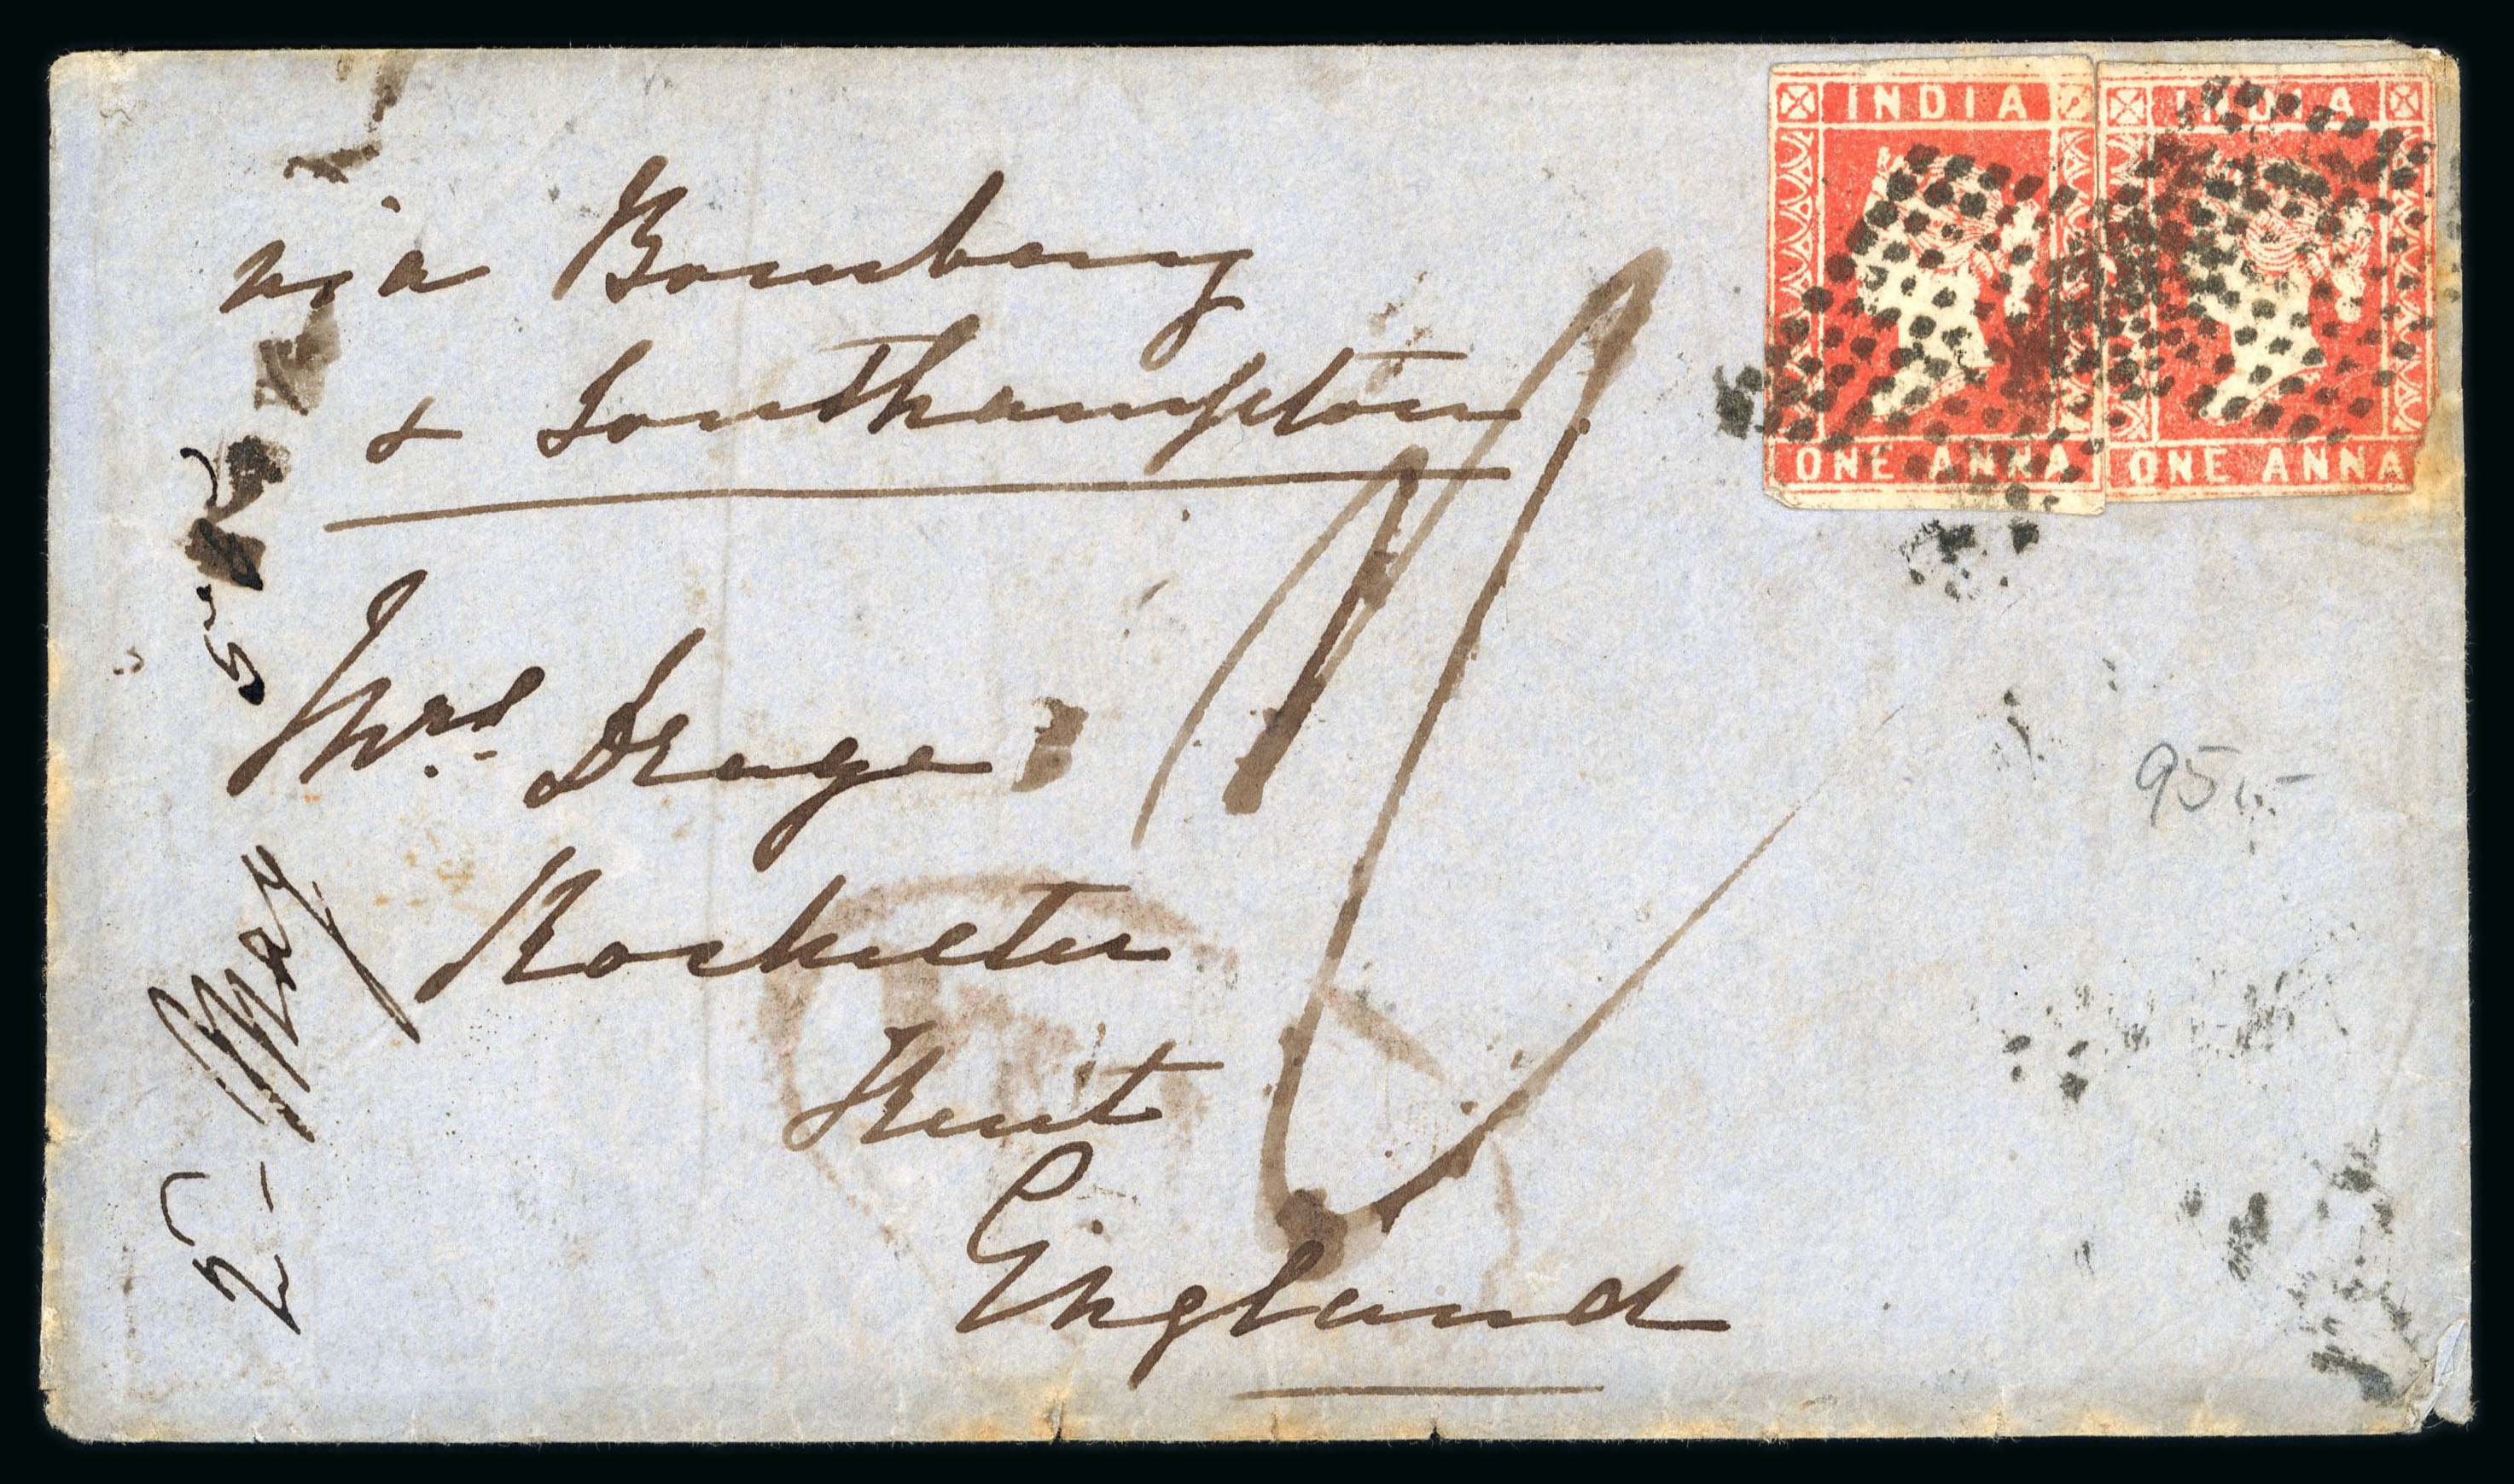 INDIA INDIA
ONE ANNA ONE ANNA
via Bombay
& Southampton
Mrs. Drage
Rochester
Kent
England
2 May